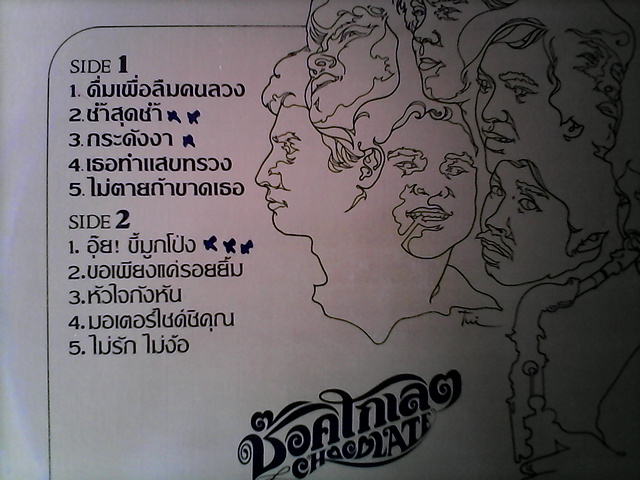 SIDE 1
1. ดื่มเพื่อลืมคนลวง
2. ช้ำสุดช้ำ
3. กระดังงา
4. เธอทำแสบทรวง
5. ไม่ตายถ้าขาดเธอ
SIDE 2
1. อุ๊ย! ขี้มูกโป่ง
2. ขอเพียงแค่รอยยิ้ม
3. หัวใจกังหัน
4. มอเตอร์ไซค์ซิคุณ
5. ไม่รัก ไม่ง้อ
Tui
ช๊อคโกเลต
CHOCOLATE